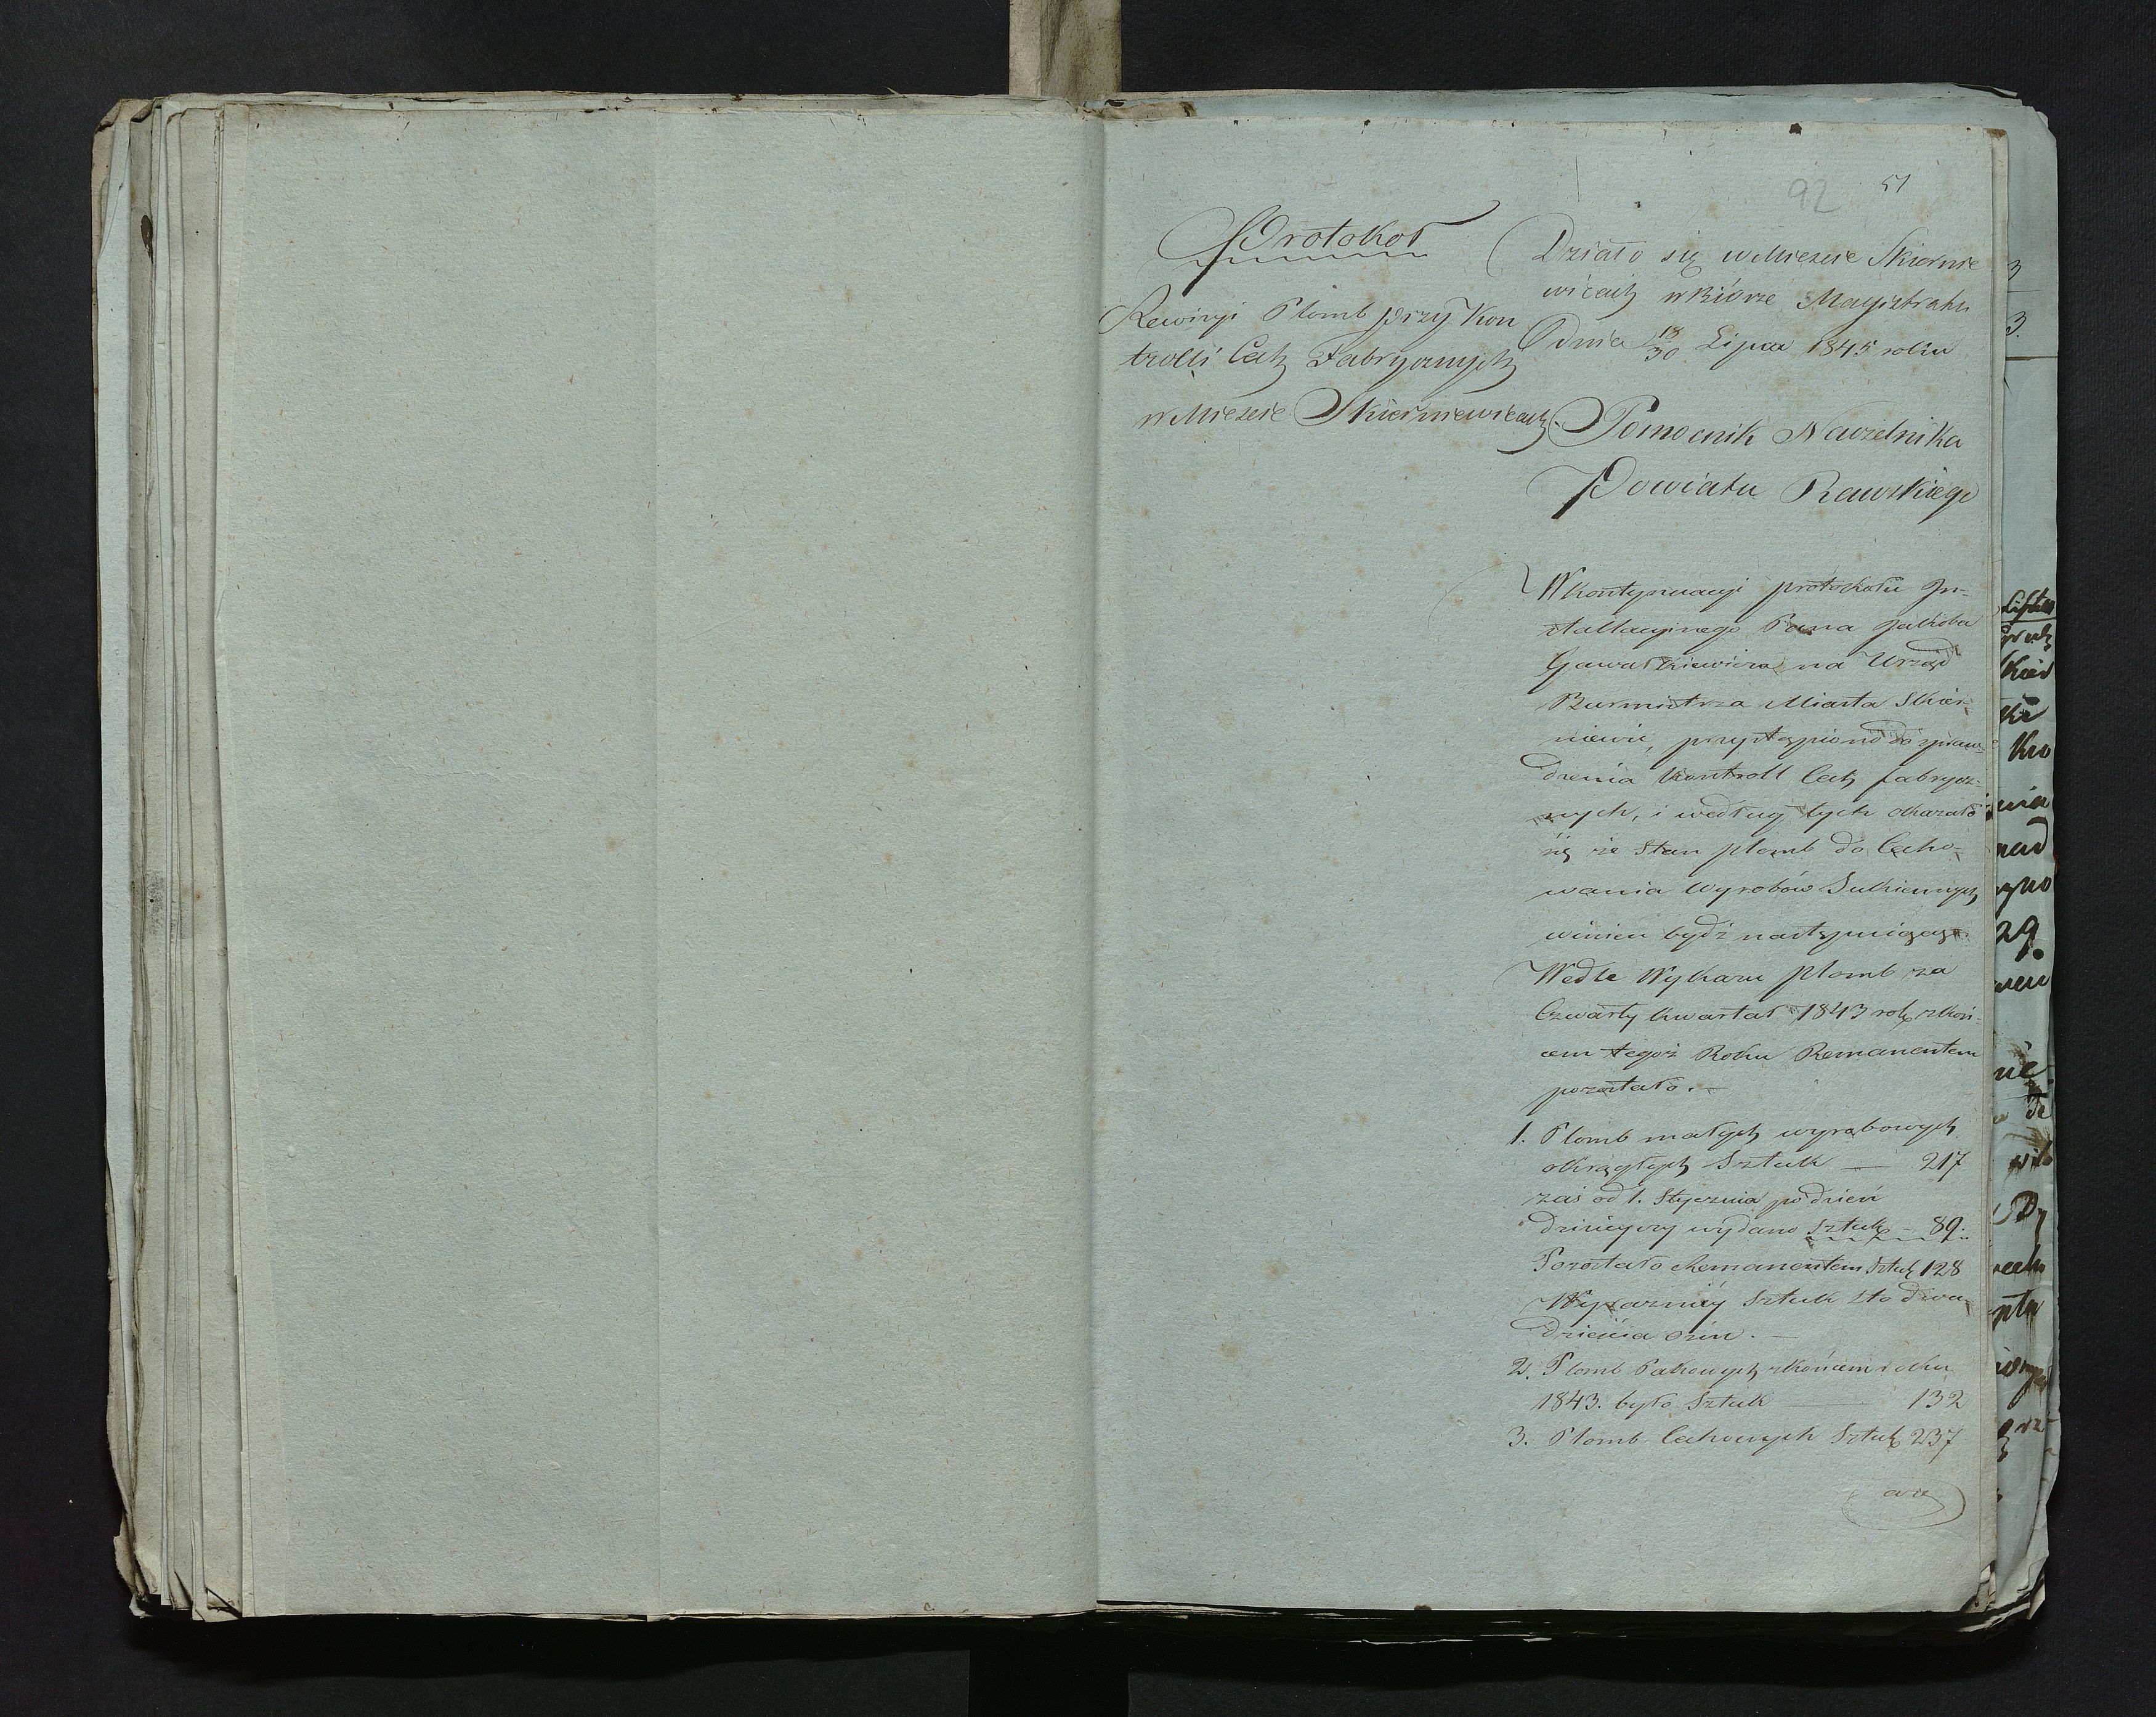 92 51
Protokoł
Rewizyi Plomb przy Kon
trolli Cech Fabrycznych
w Mieście Skierniewicach
Działo się w Mieście Skiernie
wicach w Biórze Magistratu
dnia 18/30 Lipca 1845 roku
Pomocnik Naczelnika
Powiatu Rawskiego
W kontynuacyi protokołu In-
stallacyinego Pana Jakóba
Gawałkiewicza na Urząd
Burmistrza Miasta Skier-
niewic, przystąpiono do spraw-
dzenia kontroll Cech fabrycz-
nych, i według tych okazało
się że Stan plomb do Cecho-
wania Wyrobów Sukiennych
winien bydź następuiący.
Wedle Wykazu plomb za
Czwarty kwartał 1843 roku z koń-
cem tegoż Roku Remanentem
pozostało.
1. Plomb małych wyrobowych
okrągłych Sztuk — 217
zaś od 1. Stycznia po dzień
dzisieyszy wydano Sztuk - 89.
Pozostało Remanentem Sztuk 128
Wyraźniey Sztuk sto dwa
dzieścia ośm. —
2. Plomb Pakowych z końcem roku
1843. było Sztuk — 132
3. Plomb Cechowych Sztuk 237